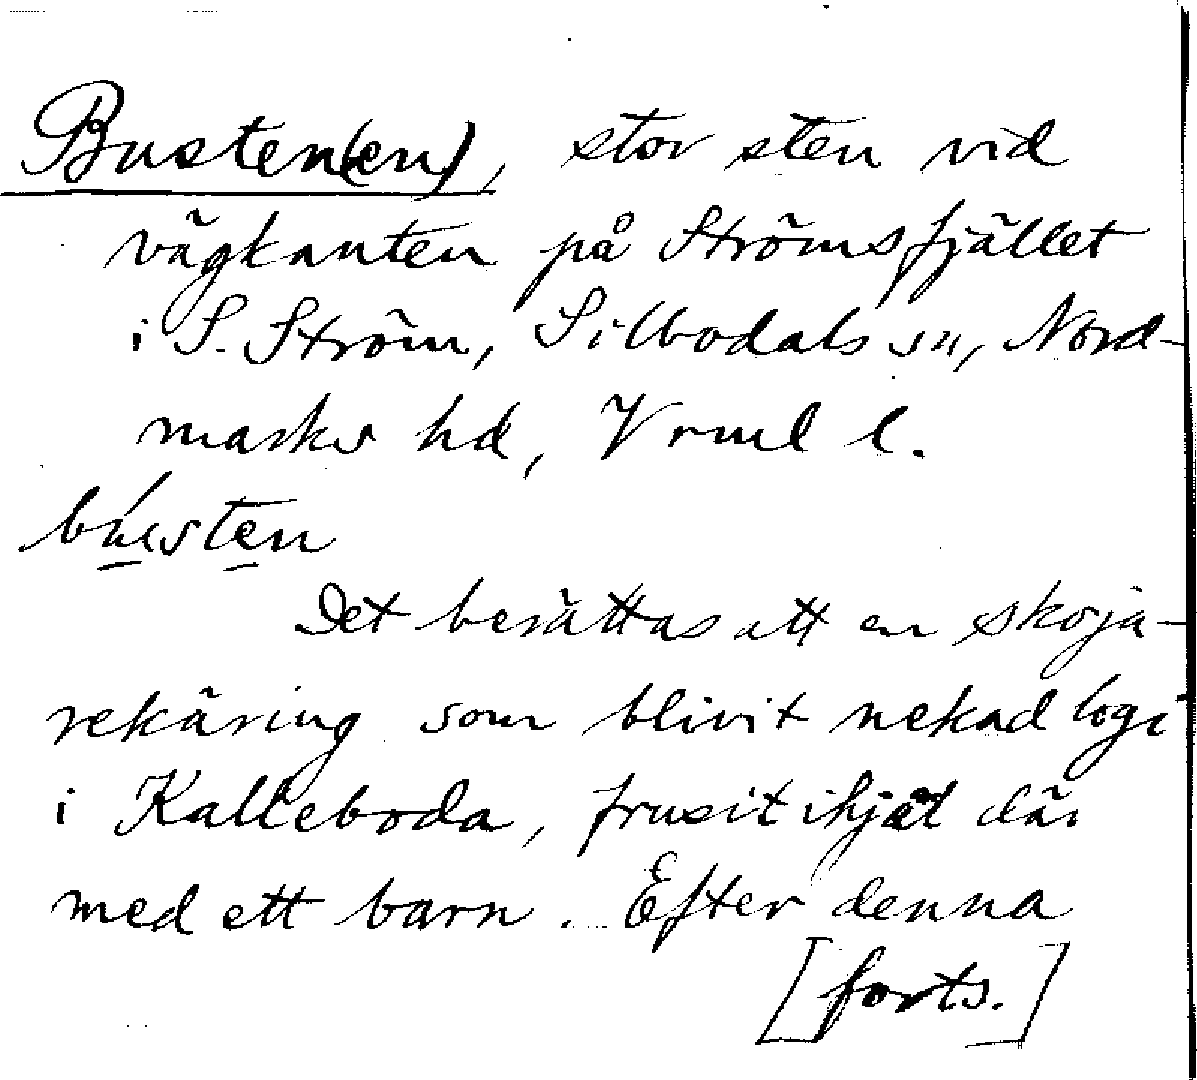 Busten(en), stor sten vid
vägkanten på Strömsfjället
i S. Ström, Silbodals sn, Nord-
marks hd, Vrml l.
bústen
Det berättas att en skoja-
rekäring som blivit nekad logi
i Kalleboda, frusit ihjäl där
med ett barn. Efter denna
[forts.]